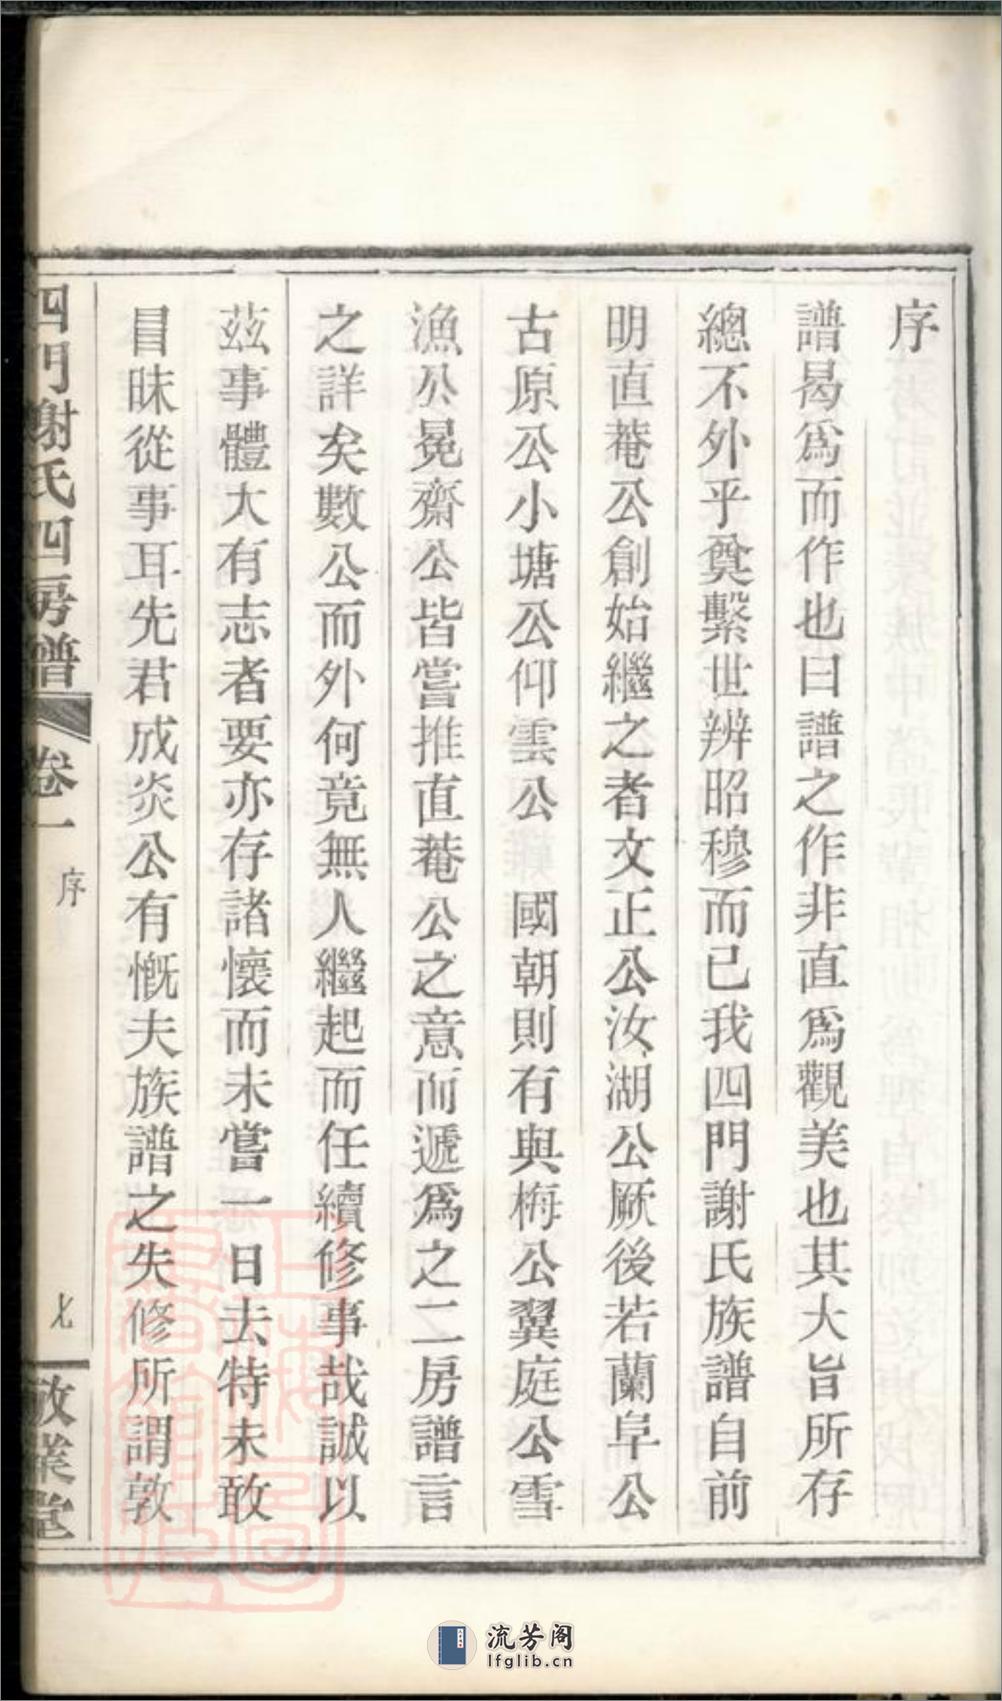 序
譜曷爲而作也曰譜之作非直爲觀美也其大旨所存
總不外乎奠繫世辨昭穆而已我四門謝氏族譜自前
明直菴公創始繼之者文正公汝湖公厥後若蘭阜公
古原公小塘公仰雲公　國朝則有與梅公翼庭公雪
漁公冕齋公皆嘗推直菴公之意而遞爲之二房譜言
之詳矣數公而外何竟無人繼起而任續修事哉誠以
茲事體大有志者要亦存諸懷而未嘗一日去特未敢
冒昧從事耳先君成炎公有慨夫族譜之失修所謂敦
四門謝氏四房譜
卷一
序
七
敬業堂
上海圖書館藏
流芳阁
lfglib.cn